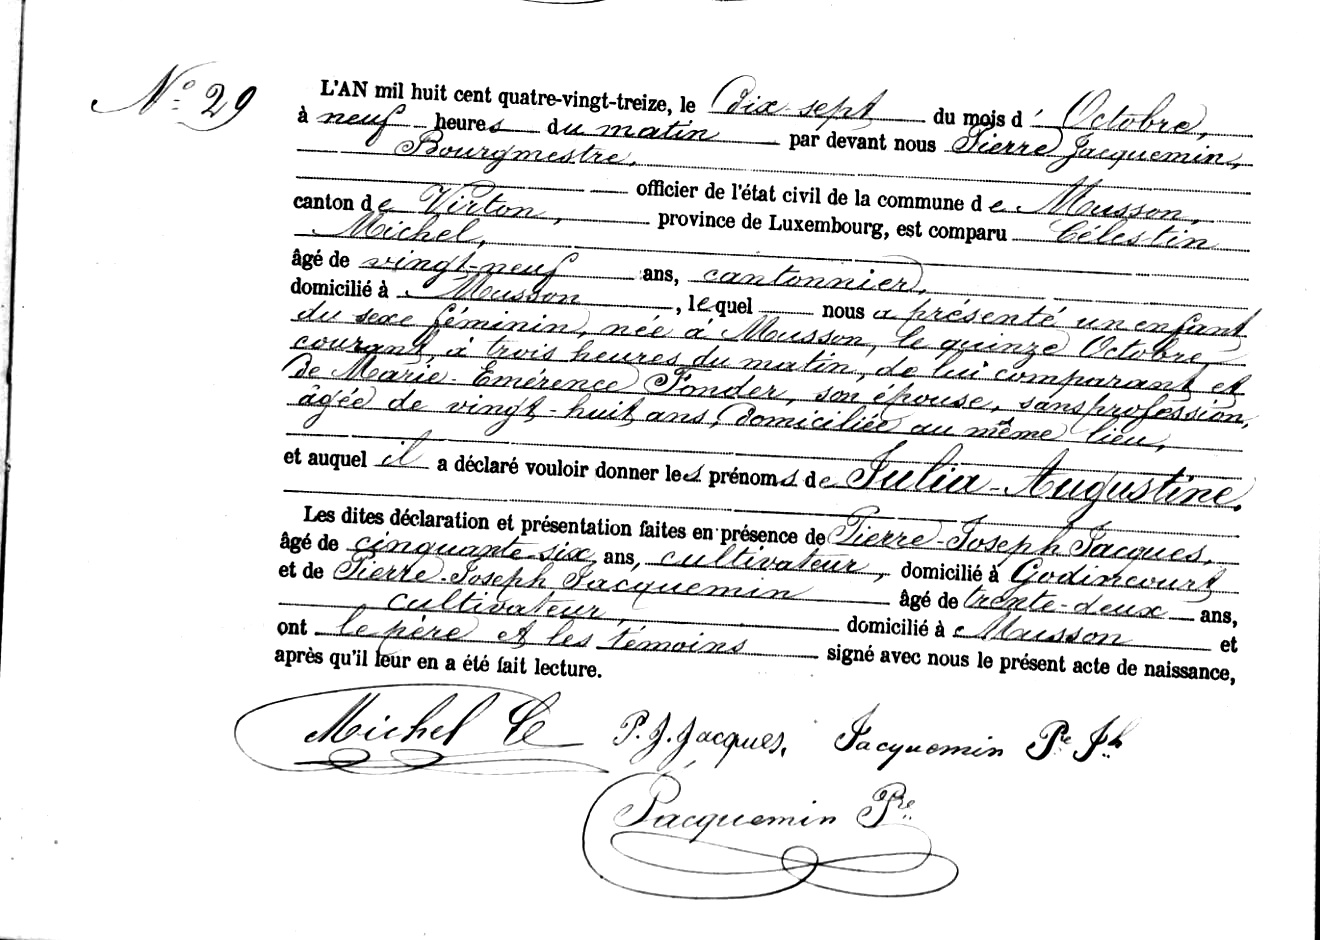 N° 29
L'AN mil huit cent quatre-vingt-treize, le dix-sept du mois d' Octobre,
à neuf heures du matin par devant nous Pierre Jacquemin,
Bourgmestre,
officier de l'état civil de la commune de Musson,
canton de Virton, province de Luxembourg, est comparu Célestin
Michel,
âgé de vingt-neuf ans, cantonnier,
domicilié à Musson, lequel nous a présenté un enfant
du sexe féminin, née à Musson, le quinze Octobre
courant, à trois heures du matin, de lui comparant et
de Marie-Emérence Fonder, son épouse, sans profession,
âgée de vingt-huit ans, domiciliée au même lieu,
et auquel il a déclaré vouloir donner les prénoms de Julia-Augustine.
Les dites déclaration et présentation faites en présence de Pierre-Joseph Jacques,
âgé de cinquante-six ans, cultivateur, domicilié à Godincourt
et de Pierre-Joseph Jacquemin âgé de trente-deux ans,
cultivateur, domicilié à Musson et
ont le père et les témoins signé avec nous le présent acte de naissance,
après qu'il leur en a été fait lecture.
Michel Ce P. J. Jacques. Jacquemin Pre Jh
Jacquemin Pre